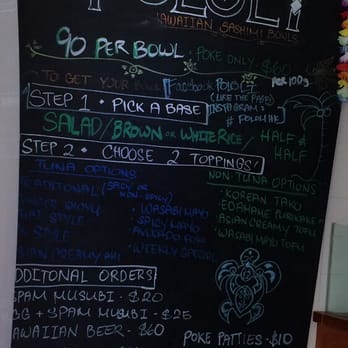 POLOLI
HAWAIIAN SASHIMI BOWLS
90 PER BOWL · POKE ONLY · $60 PER 100g
TO GET YOUR BOWL
Facebook POLOLI
(LIKE THE PAGE)
INSTAGRAM:
# POLOLIHK
STEP 1 · PICK A BASE
SALAD/BROWN OR WHITE RICE/ HALF & HALF
STEP 2 · CHOOSE 2 TOPPINGS!
TUNA OPTIONS
TRADITIONAL (SPICY OR NON-SPICY)
SHOYU
STYLE
STYLE
CREAMY AHI
· WASABI MAYO
· SPICY MAYO
· AVOCADO
· WEEKLY SPECIAL
NON TUNA OPTIONS
· KOREAN TAKO
· EDAMAME
· ASIAN CREAMY TOFU
· WASABI MAYO TOFU
ADDITONAL ORDERS
SPAM MUSUBI · $20
EGG + SPAM MUSUBI · $25
HAWAIIAN BEER · $60
POKE PATTIES · $10